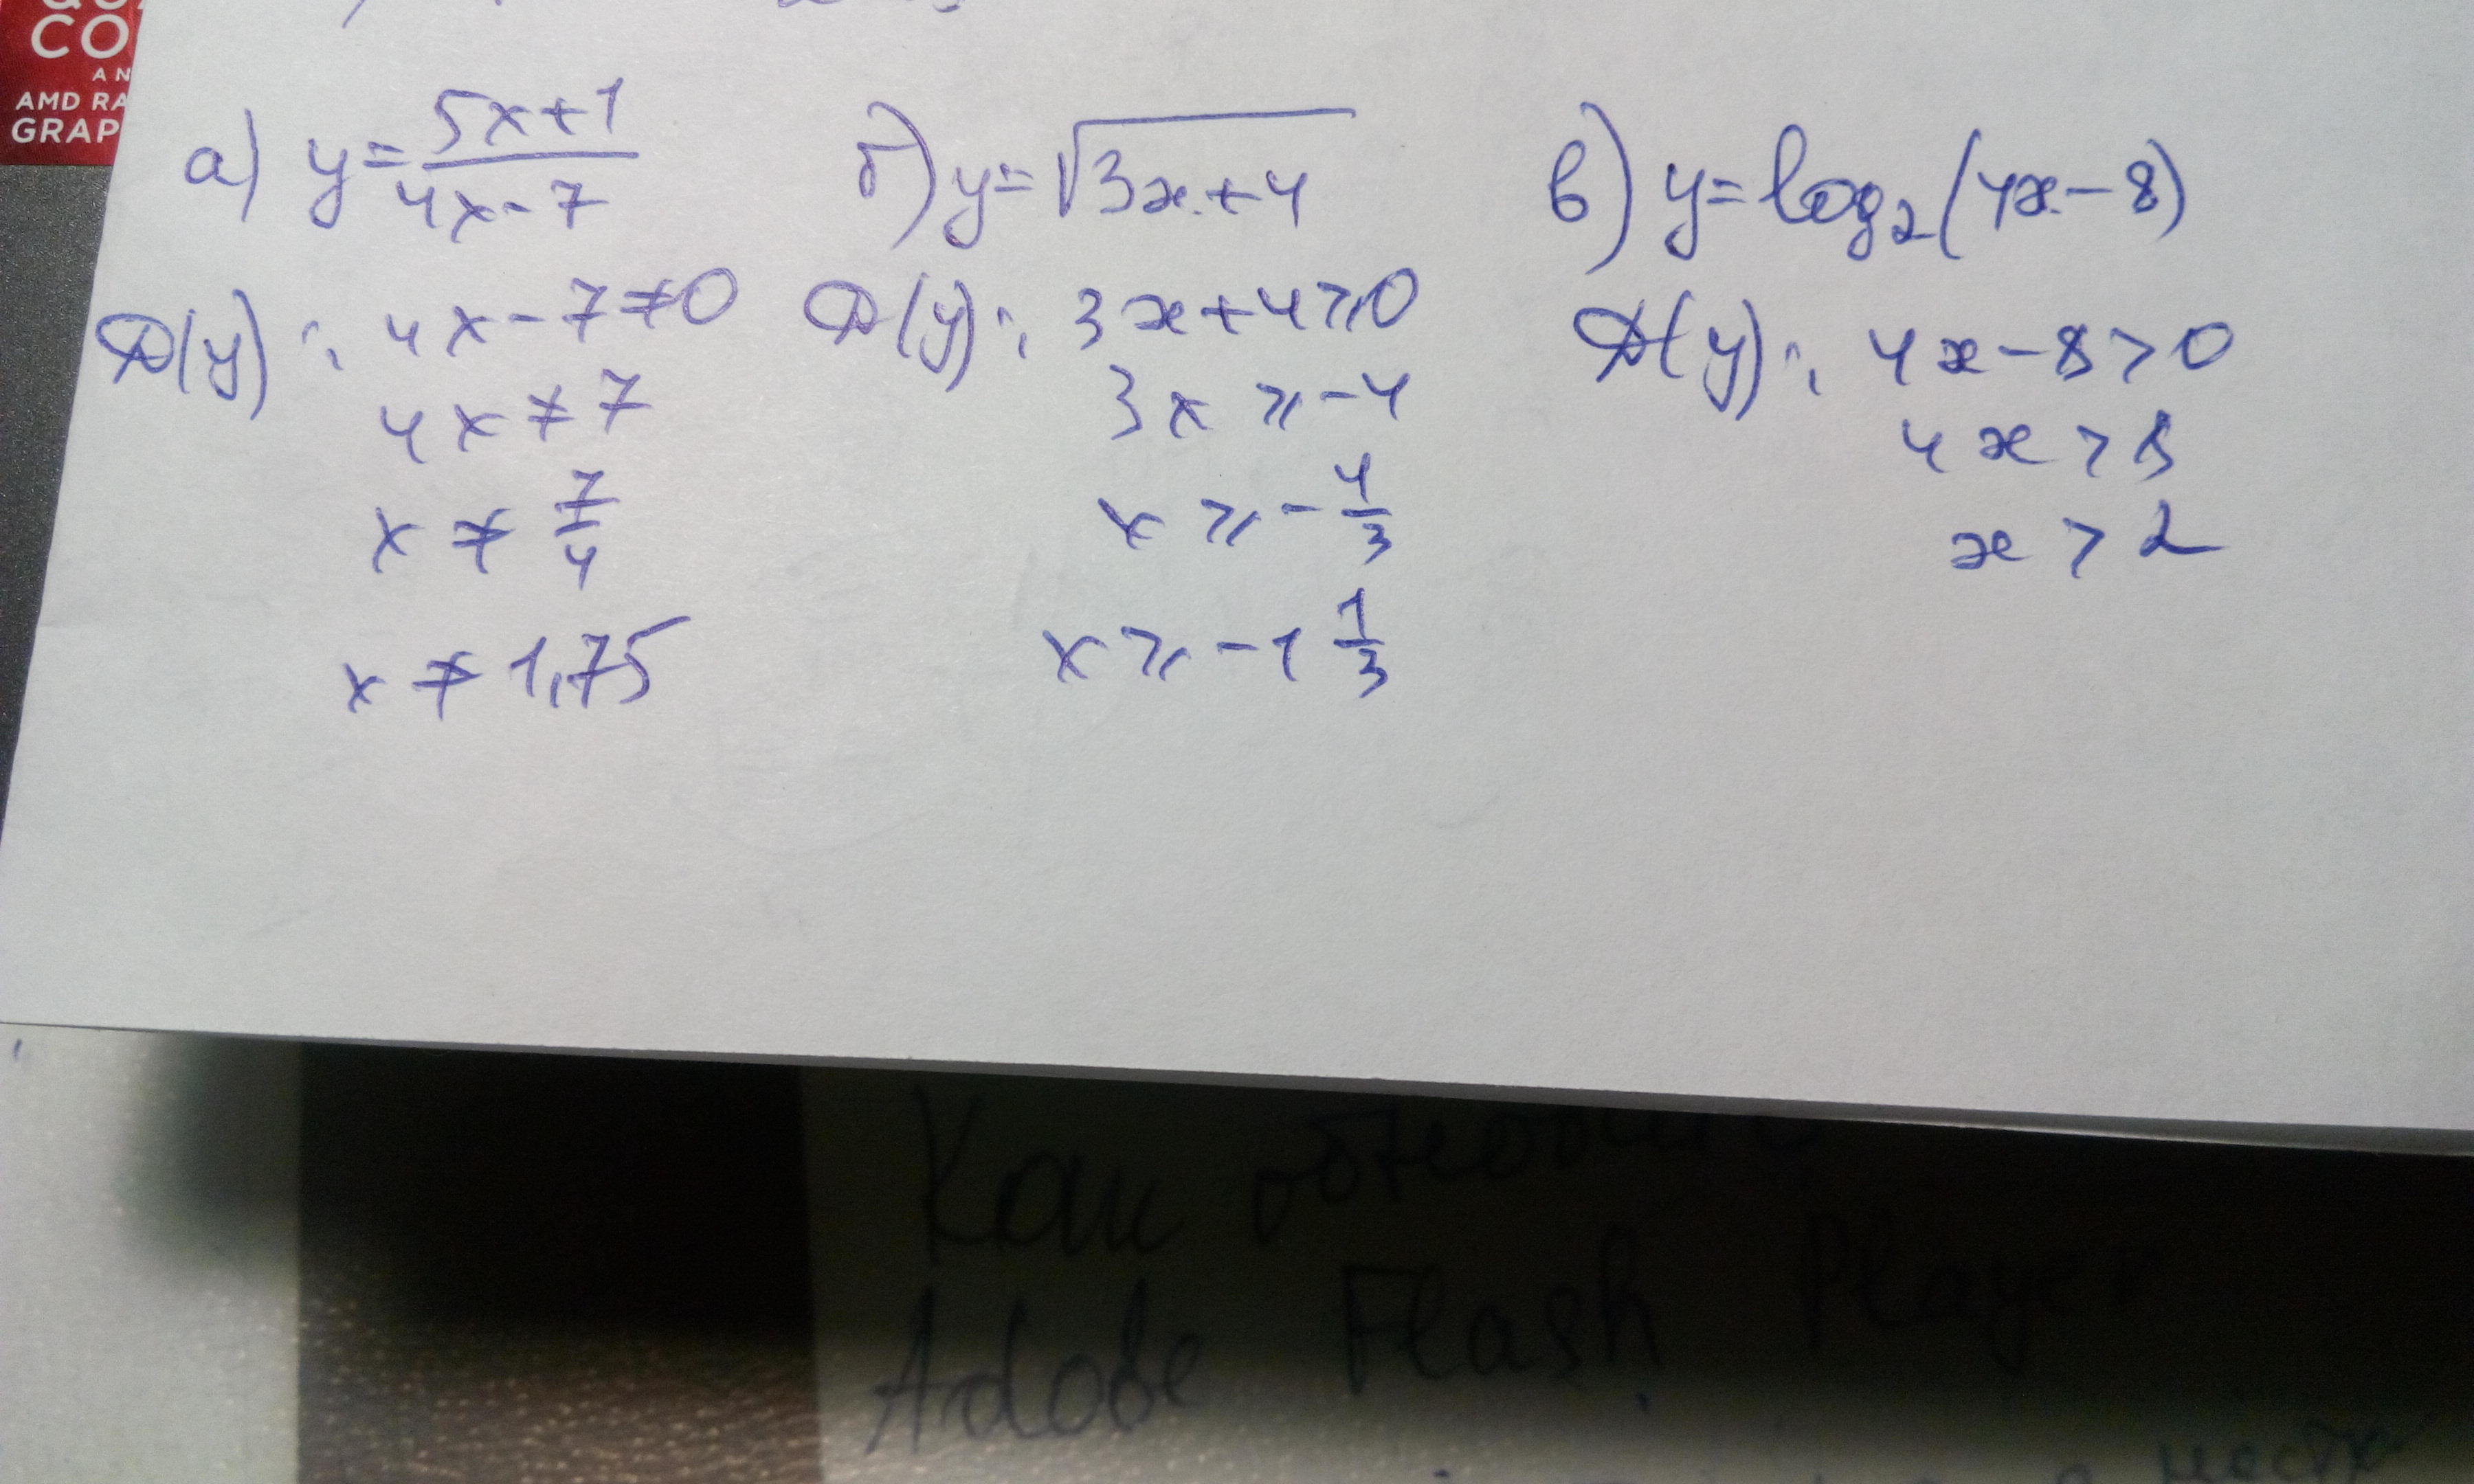 CO
AN
AMD RA
GRAP
а) y = (5x+1)/(4x-7)
D(y): 4x-7≠0
4x≠7
x ≠ 7/4
x ≠ 1,75
б) y = √(3x+4)
D(y): 3x+4⩾0
3x ⩾ -4
x ⩾ -4/3
x ⩾ -1 1/3
в) y = log₂(4x-8)
D(y): 4x-8>0
4x > 8
x > 2
Как
Adobe Flash Player